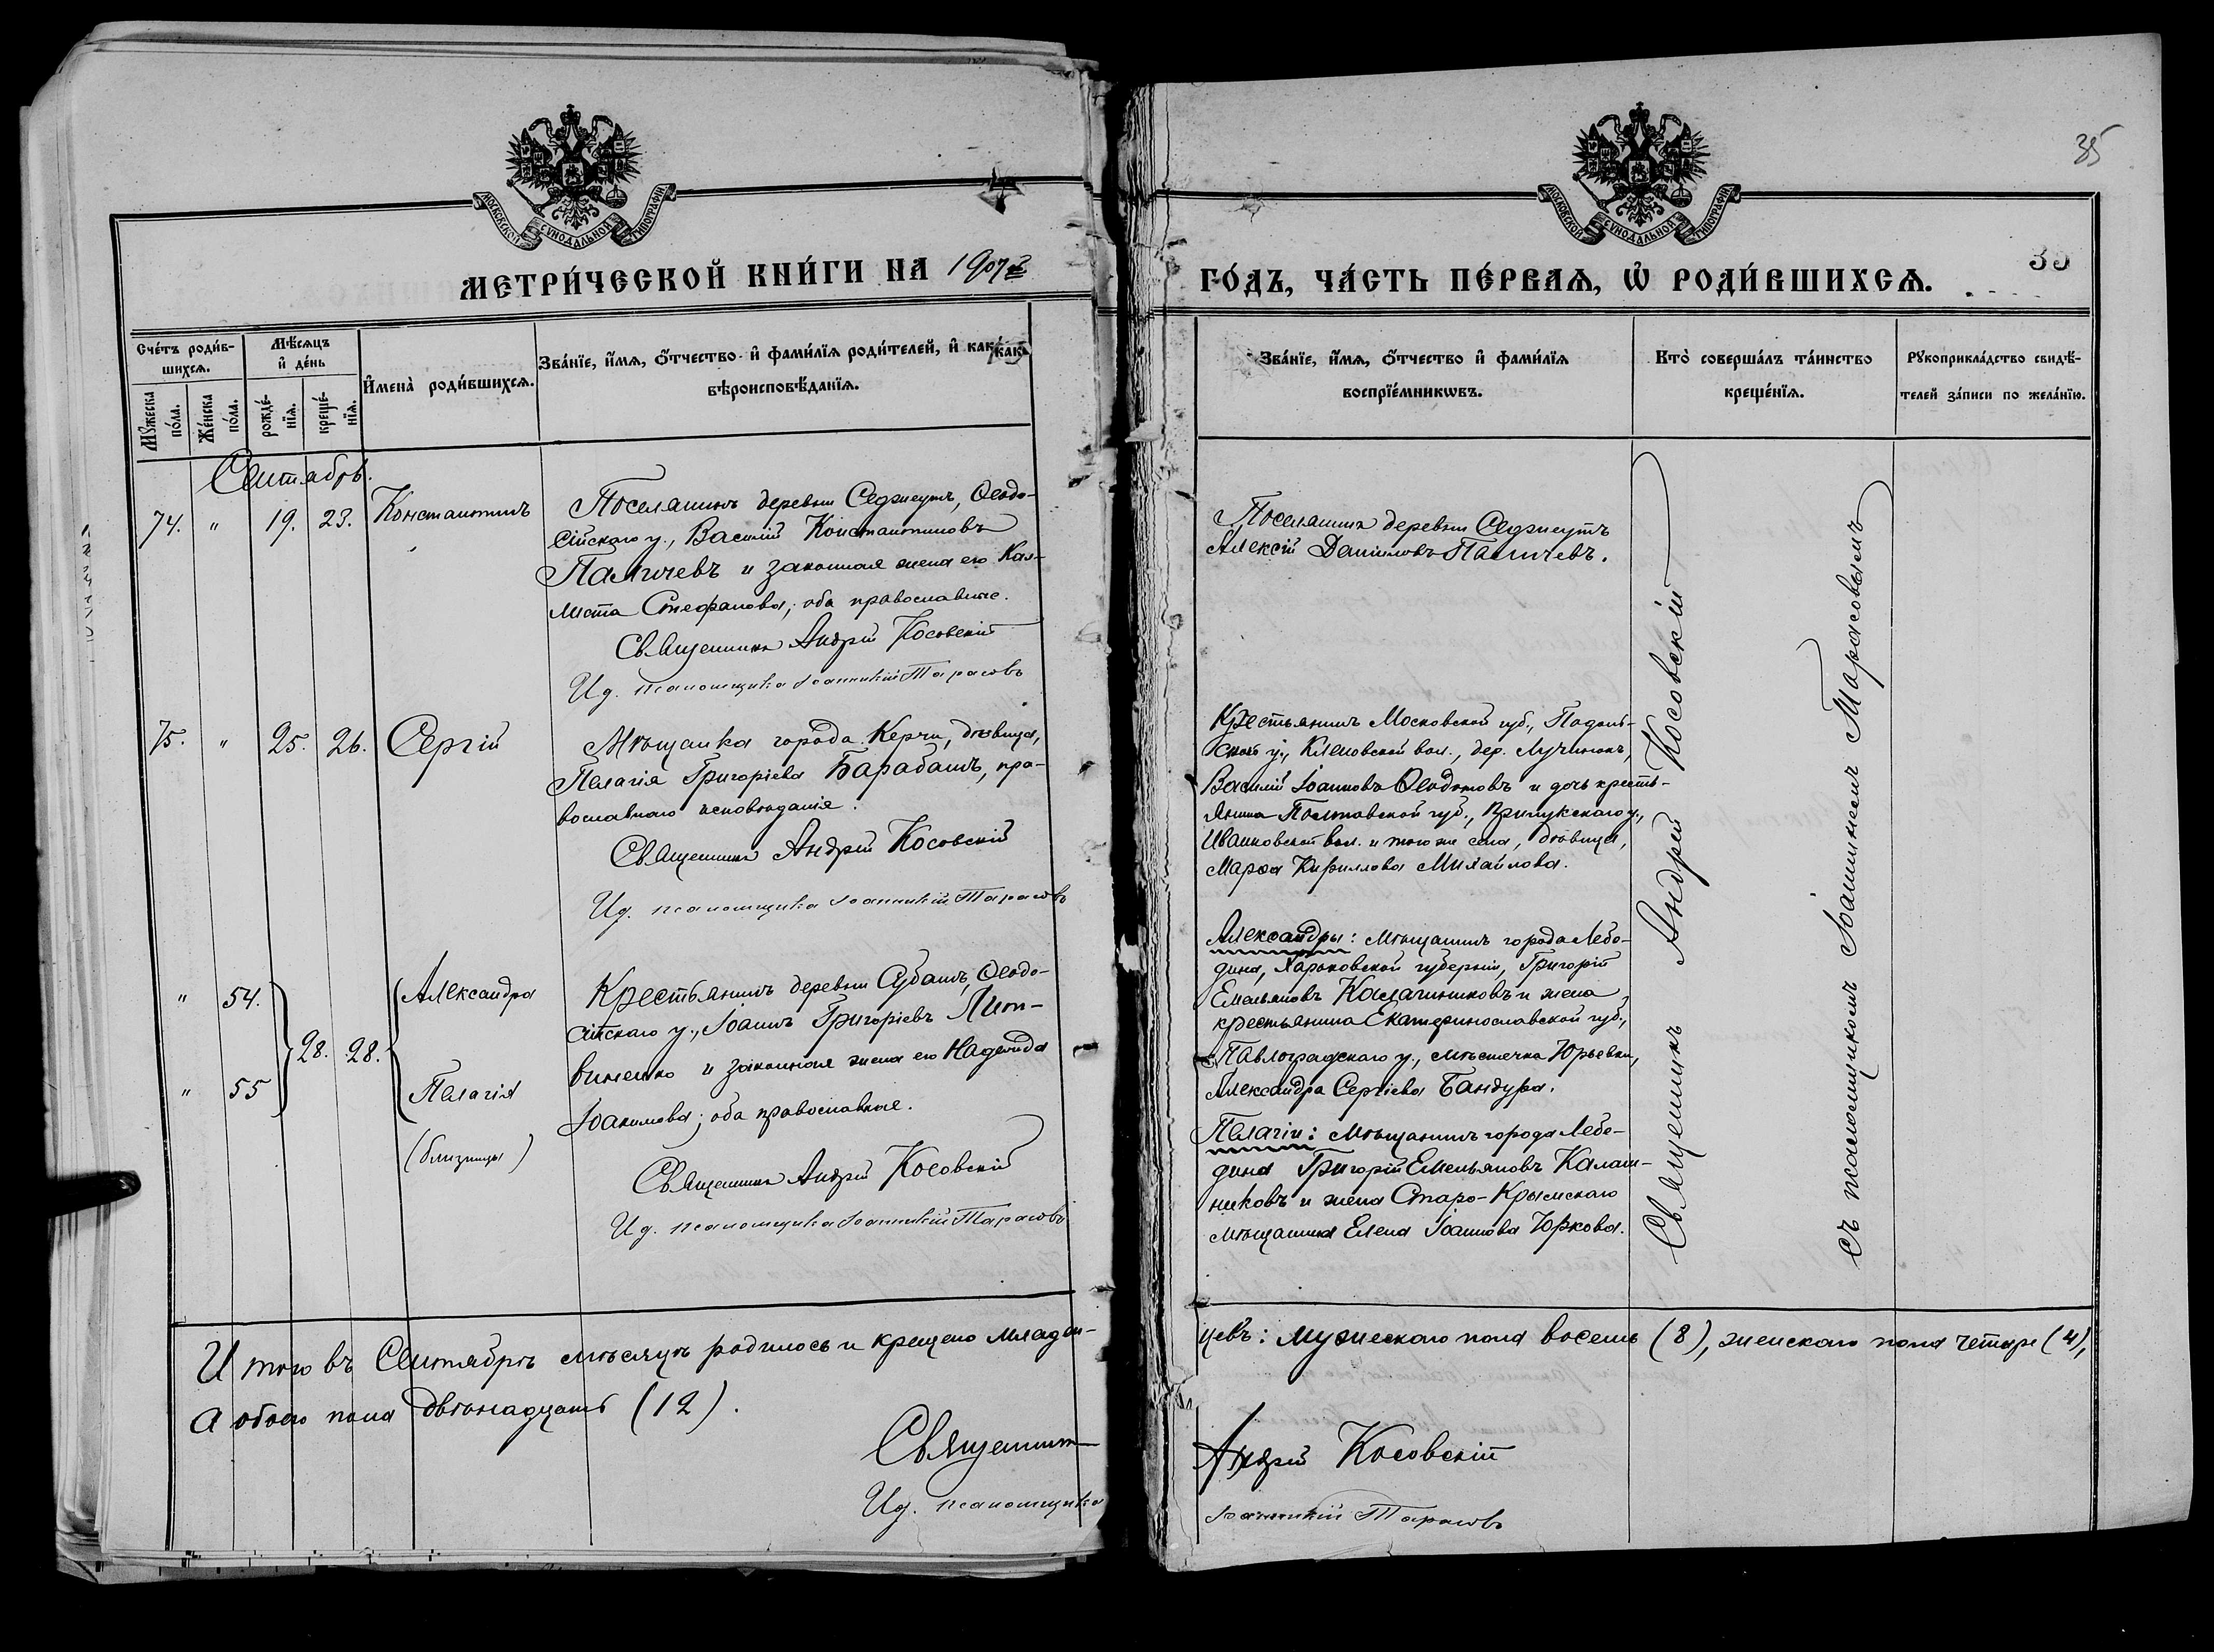 35
МОСКОВСКОЙ СУНОДАЛЬНОЙ ТИПОГРАФІИ
МОСКОВСКОЙ СУНОДАЛЬНОЙ ТИПОГРАФІИ
МЕТРИ́ЧЕСКОЙ КНИ́ГИ НА 1907й
ГО́ДЪ, ЧА́СТЬ ПЕ́РВАѦ, Ѽ РОДИ́ВШИХСѦ.
35
Сче́тъ роди́в-
шихсѧ.
Мѣ́сѧцъ
и҆ де́нь
Мꙋ́жеска
по́ла.
Же́нска
по́ла.
рожде́-
нїѧ.
креще́-
нїѧ.
И҆мена̀ роди́вшихсѧ.
Зва́нїе, и҆́мѧ, ѻ҆́тчество и҆ фами́лїѧ роди́телей, и҆ како́гѡ
вѣроисповѣ́данїѧ.
Зва́нїе, и҆́мѧ, ѻ҆́тчество и҆ фами́лїѧ
воспрїе́мникѡвъ.
Кто̀ соверша́лъ та́инство
креще́нїѧ.
Рꙋкоприкла́дство свидѣ́-
телей за́писи по жела́нїю.
Сентябрь.
74. " 19. 23. Константинъ
Поселянинъ деревни Седжеутъ, Ѳеодо-
сійскаго у., Василій Константиновъ
Паличевъ и законная жена его Кал-
листа Стефанова; оба православные.
Священникъ Андрей Косовскій
И д. псаломщика Іоанникій Тарасовъ
Поселянинъ деревни Седжеутъ
Алексій Даніиловъ Паличевъ.
75. " 25. 26. Сергій
Мѣщанка города Керчи, дѣвица,
Пелагія Григоріева Барабашъ, пра-
вославнаго исповѣданія.
Священникъ Андрей Косовскій
И д. псаломщика Іоанникій Тарасовъ
Крестьянинъ Московской губ., Подоль-
скаго у., Кленовской вол., дер. Лучинокъ,
Василій Іоанновъ Ѳедотовъ и дочь кресть-
янина Полтавской губ., Прилукскаго у.,
Иванковской вол. и того же села, дѣвица,
Марѳа Кириллова Михайлова.
" 54. Александра
28. 28.
" 55 Пелагія
(близнецы)
Крестьянинъ деревни Субашъ, Ѳеодо-
сійскаго у., Іоаннъ Григоріевъ Лит-
виненко и законная жена его Надежда
Іоакимова; оба православные.
Священникъ Андрей Косовскій
И д. псаломщика Іоанникій Тарасовъ
Александры: мѣщанинъ города Лебе-
дина, Харьковской губерніи, Григорій
Емельяновъ Калашниковъ и жена
крестьянина Екатеринославской губ.,
Павлоградскаго у., мѣстечка Юрьевки,
Александра Сергіева Бандура.
Пелагіи: мѣщанинъ города Лебе-
дина Григорій Емельяновъ Калаш-
никовъ и жена Старо-Крымскаго
мѣщанина Елена Іоаннова Юркова.
Священникъ Андрей Косовскій
съ псаломщикомъ Іоанникіемъ Тарасовымъ
Итого въ Сентябрѣ мѣсяцѣ родилось и крещено младен-
цевъ: мужескаго пола восемь (8), женскаго пола четыре (4),
а обоего пола двѣнадцать (12).
Священникъ
Андрей Косовскій
И д. псаломщика
Іоанникій Тарасовъ